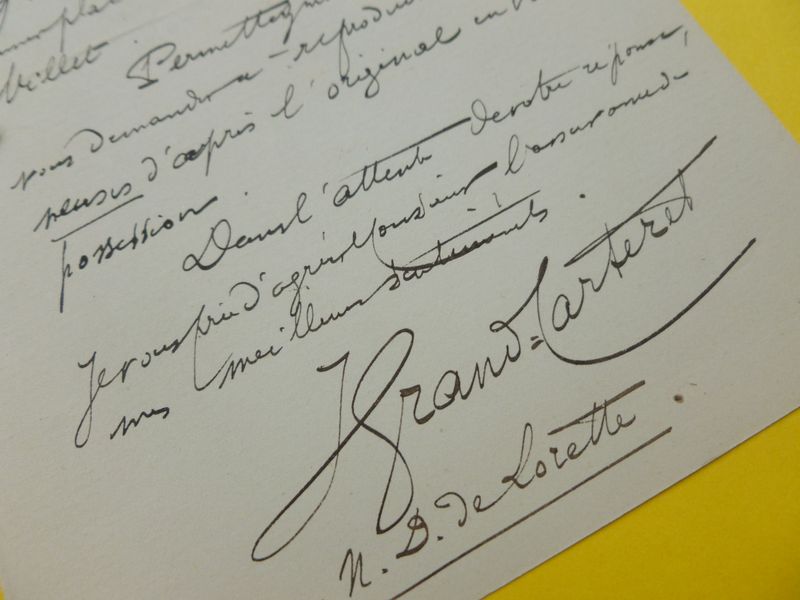 Millet. Permettez
vous demander à reproduire
d'après l'original en
possession.
Dans l'attente de votre réponse,
Je vous prie d'agréer Monsieur l'assurance de
mes meilleurs sentiments.
J Grand-Carteret
N. D. de Lorette.